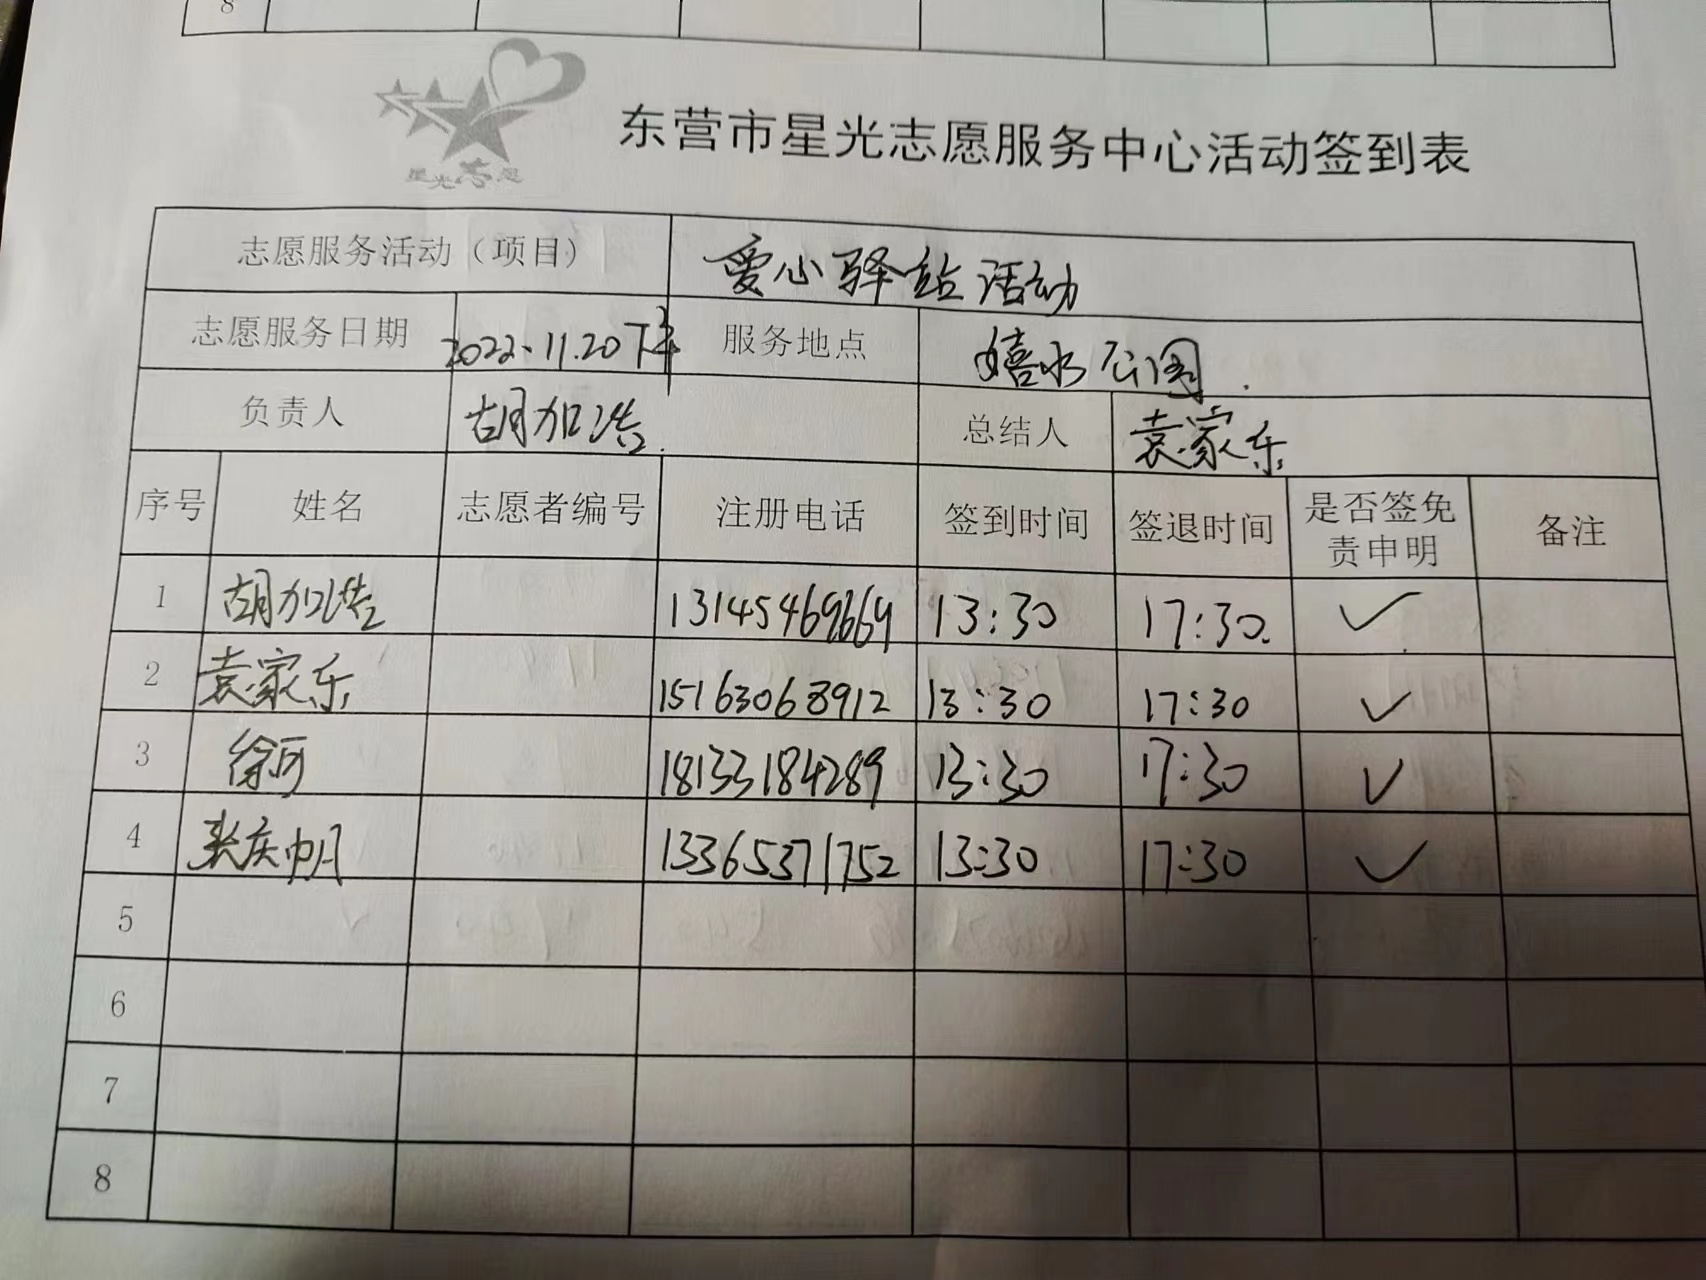 8
星光志愿
东营市星光志愿服务中心活动签到表
志愿服务活动（项目） 爱心驿站活动
志愿服务日期 2022.11.20下午 服务地点 嬉水公园.
负责人 胡加浩. 总结人 袁家乐
序号 姓名 志愿者编号 注册电话 签到时间 签退时间 是否签免责申明 备注
1 胡加浩 13:30 17:30. ✓
2 袁家乐 15163068912 13:30 17:30 ✓
3 徐河 18133184289 13:30 17:30 ✓
4 张庆帅 13365371752 13:30 17:30 ✓
5
6
7
8